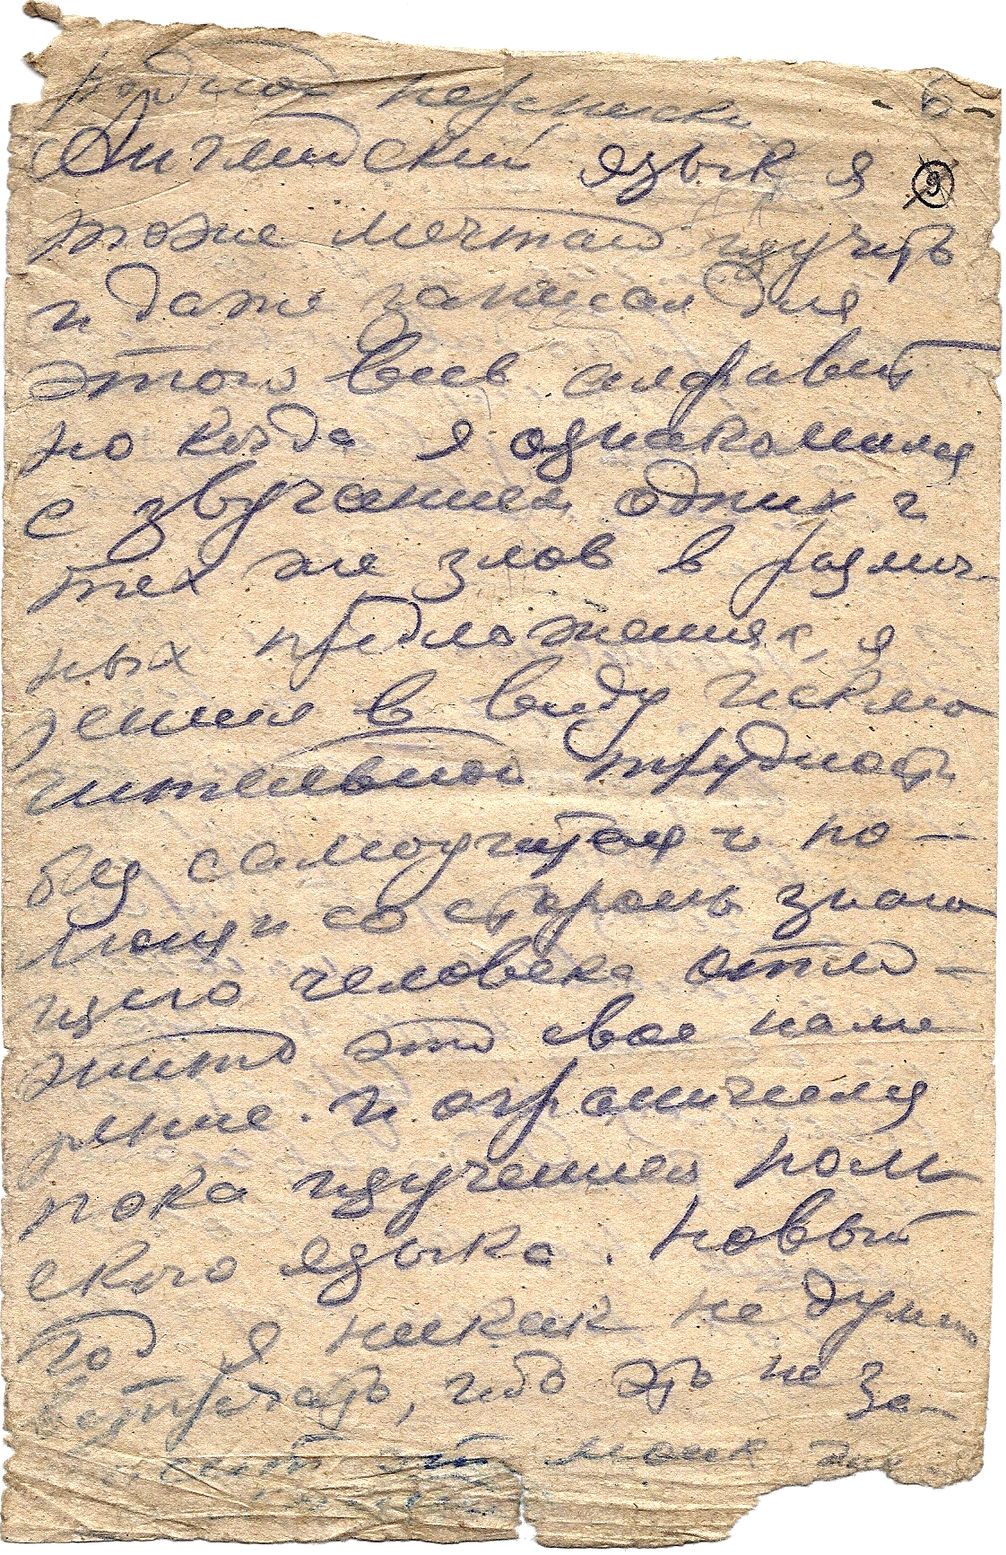 родной переписки - 6 -
Английский язык я 9
тоже мечтаю изучить
и даже записал для
этого весь алфавит
но когда я ознакомился
с звучанием одних и
тех же злов в различ-
ных предложениях, я
решил в виду исклю
чительной трудности
без самоучителя и по-
мощи со стороны знаю
щего человека отло-
жить это свое наме
рение. И ограничился
пока изучением поль
ского языка. Новый
год я никак не думаю
встречать, ибо это не за-
от моих